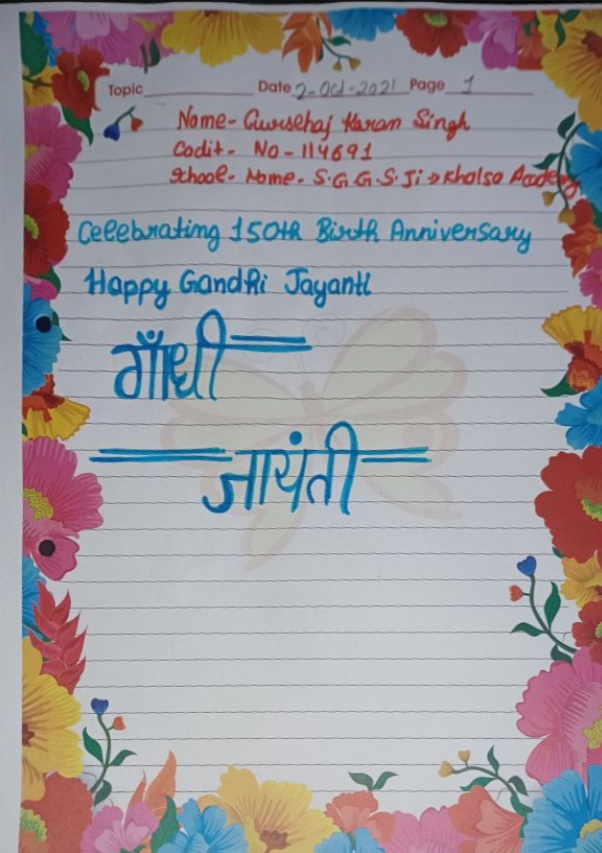 Topic Date 2-Oct-2021 Page 1
Name- Gursehaj Karan Singh
Codit- No - 114691
School- Name- S.G.G.S.Ji → Khalsa Academy
Celebrating 150th Birth Anniversary
Happy Gandhi Jayanti
गाँधी
जायंती